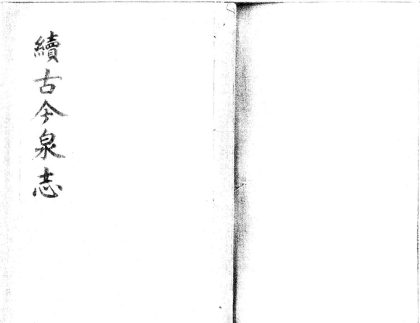 續古今泉志